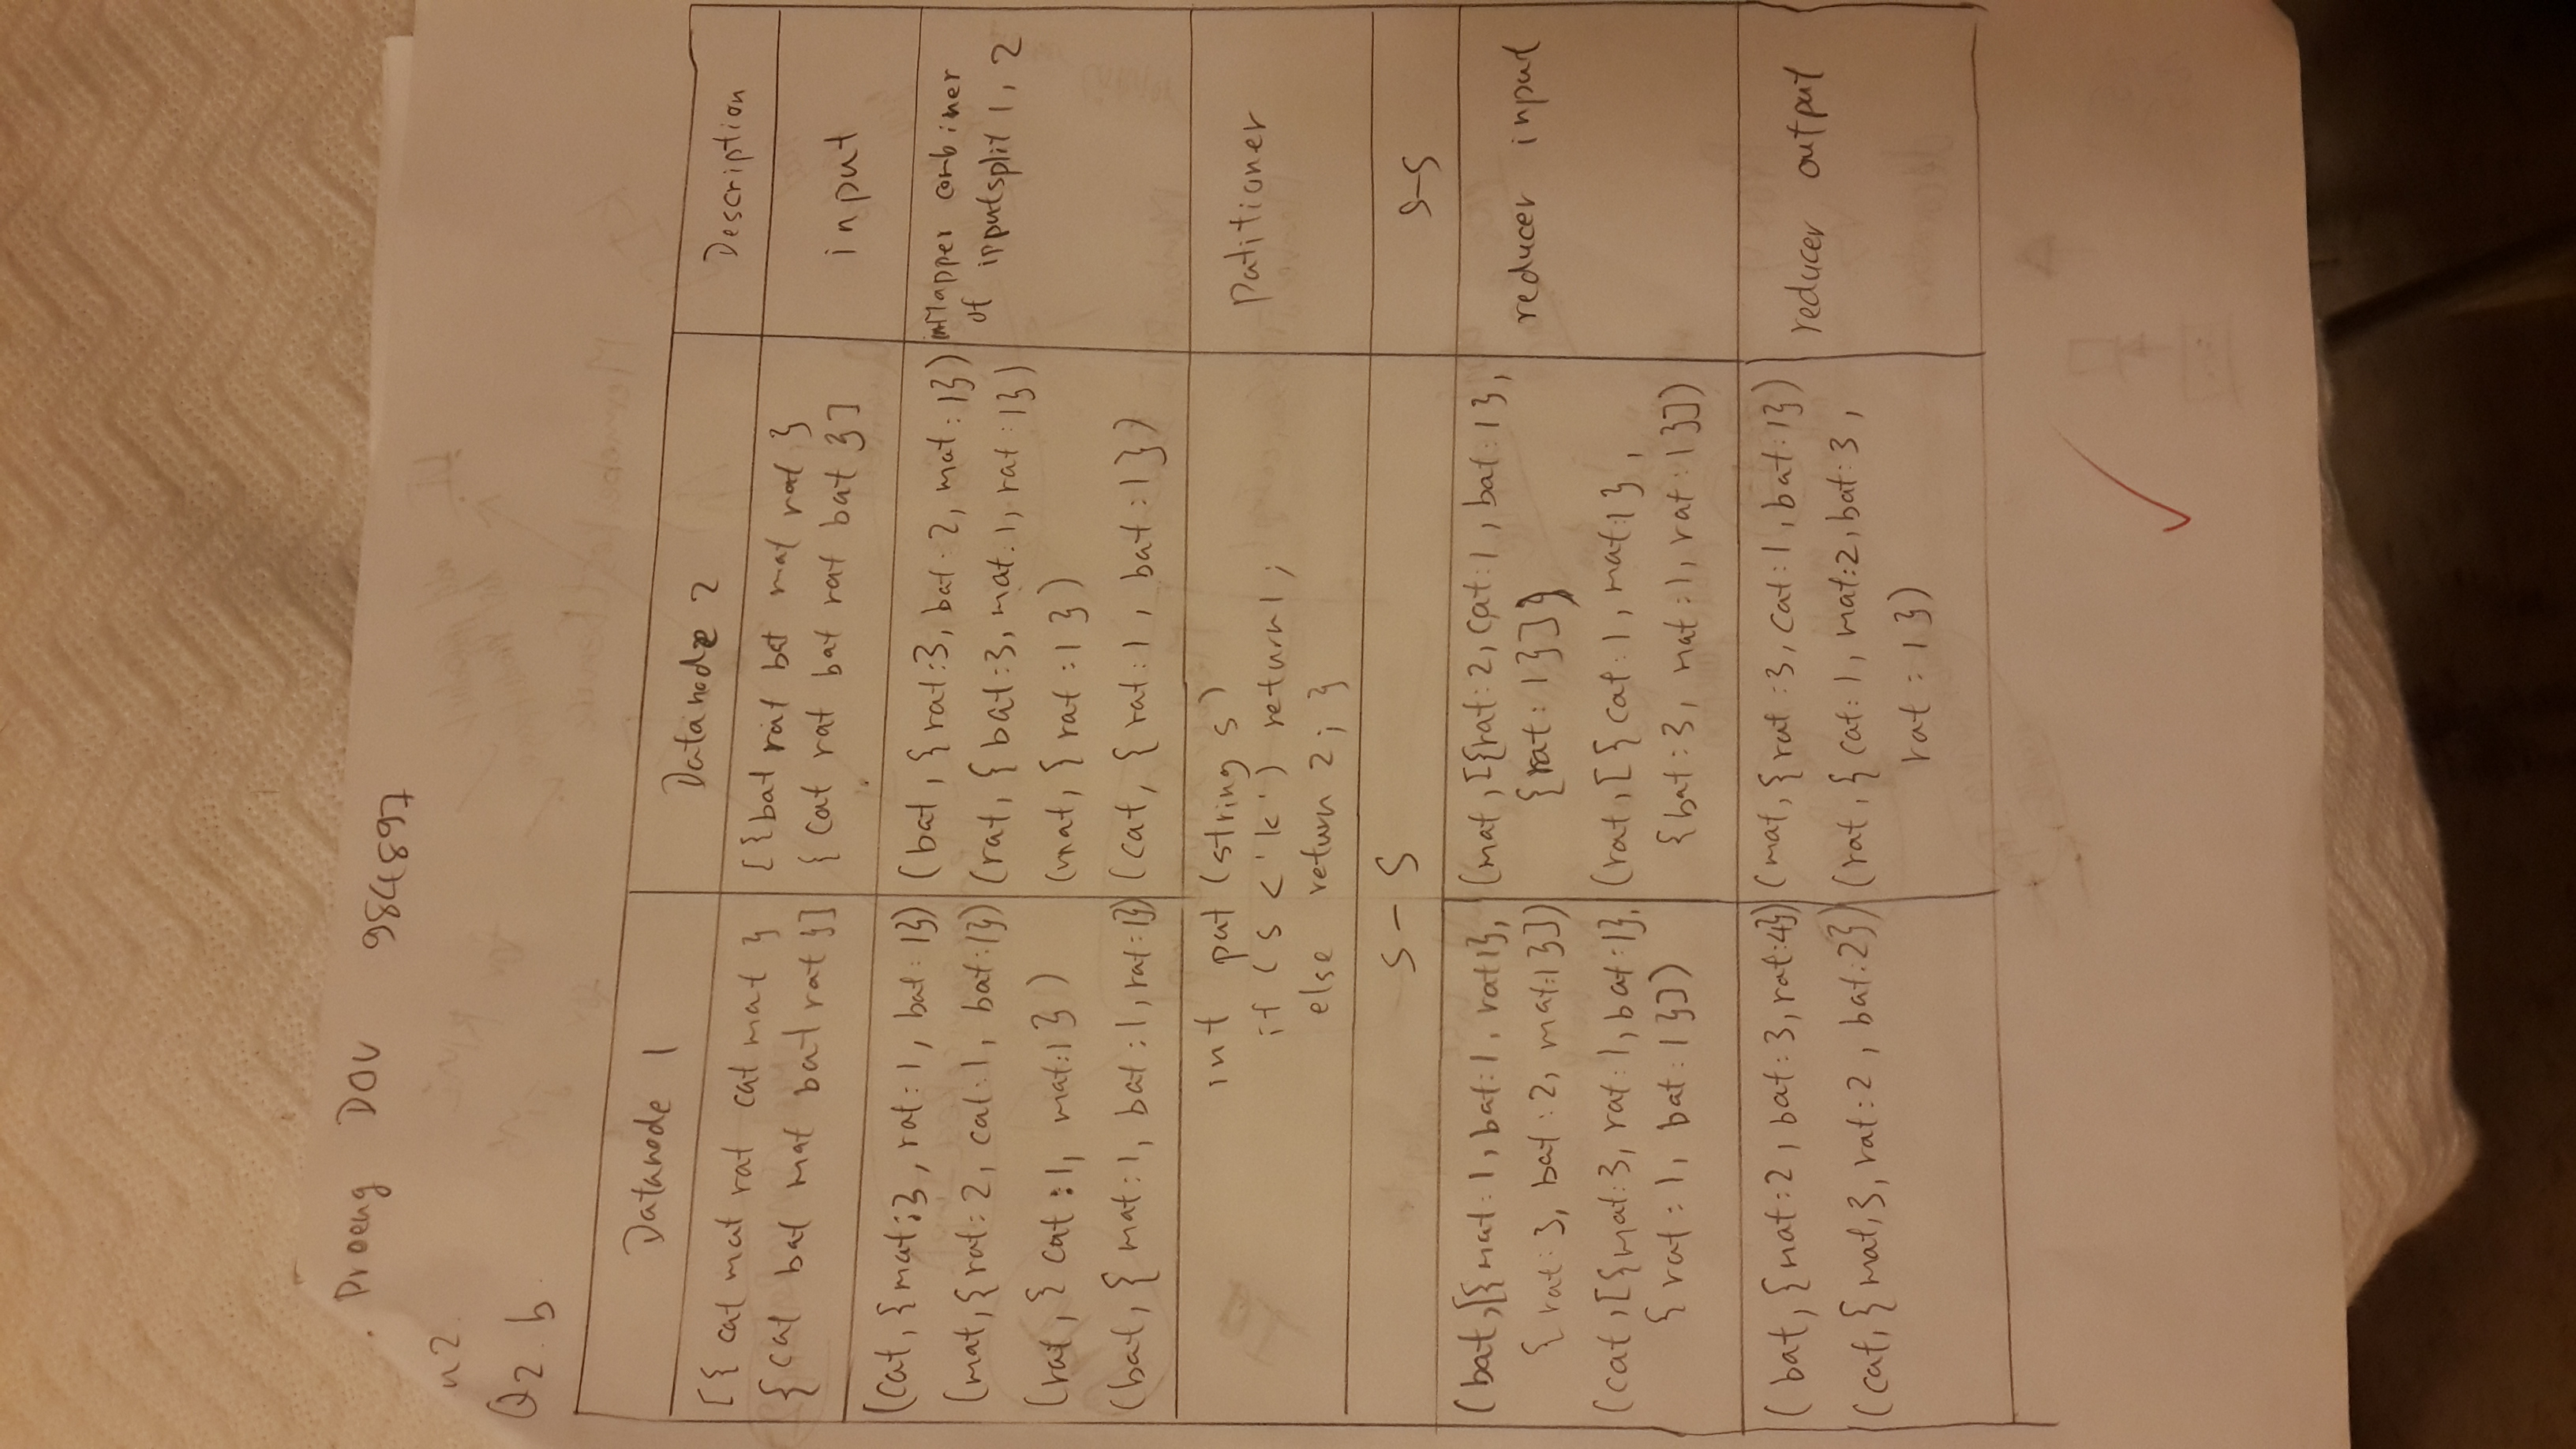 Proeung DOV 984897
n2.
Q2. b.
Datanode 1
Datanode 2
Description
[{ cat mat rat cat mat }
{ cat bat mat bat rat }]
[{bat rat bat mat rat }
{ cat rat bat rat bat }]
input
(cat, {mat:3, rat:1, bat:1})
(mat, {rat:2, cat:1, bat:1})
(rat, { cat:1, mat:1 })
(bat, { mat:1, bat:1, rat:1})
(bat, { rat:3, bat:2, mat:1})
(rat, { bat:3, mat:1, rat:1})
(mat, { rat:1 })
(cat, { rat:1, bat:1 })
inMapper combiner
of inputsplit 1, 2
int put (string s)
if ( s < 'k' ) return 1;
else return 2; }
Patitioner
S - S
S-S
(bat,[{mat:1, bat:1, rat1},
{ rat:3, bat:2, mat:1}])
(cat,[{mat:3, rat:1, bat:1},
{ rat:1, bat:1}])
(mat,[{rat:2, cat:1, bat:1},
{rat:1}])
(rat,[{ cat:1, mat:1},
{bat:3, mat:1, rat:1}])
reducer input
( bat, {mat:2, bat:3, rat:4})
(cat, { mat,3, rat:2, bat:2})
(mat, {rat:3, cat:1, bat:1})
(rat, { cat:1, mat:2, bat:3,
rat:1 })
reducer output